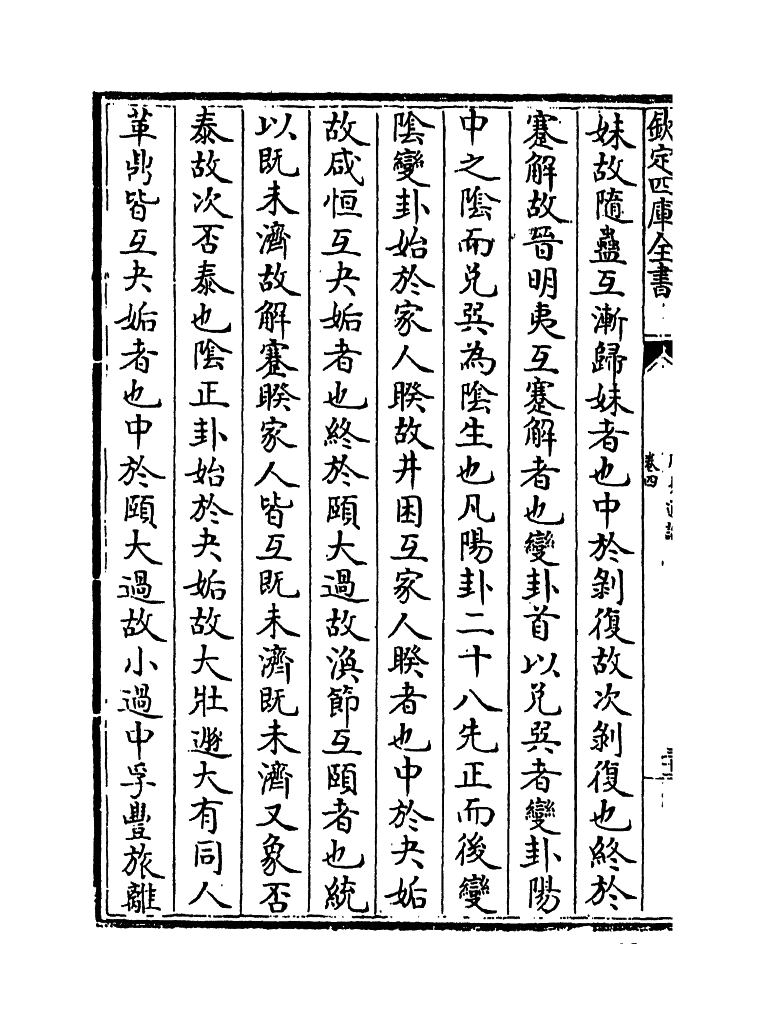 欽定四庫全書
卷四
妹故隨蠱互漸歸妹者也中於剝復故次剝復也終於
蹇解故晉明夷互蹇解者也變卦首以兌巽者變卦陽
中之陰而兌巽為陰生也凡陽卦二十八先正而後變
陰變卦始於家人睽故井困互家人睽者也中於夬姤
故咸恒互夬姤者也終於頤大過故渙節互頤者也統
以既未濟故解蹇睽家人皆互既未濟既未濟又象否
泰故次否泰也陰正卦始於夬姤故大壯遯大有同人
革鼎皆互夬姤者也中於頤大過故小過中孚豐旅離